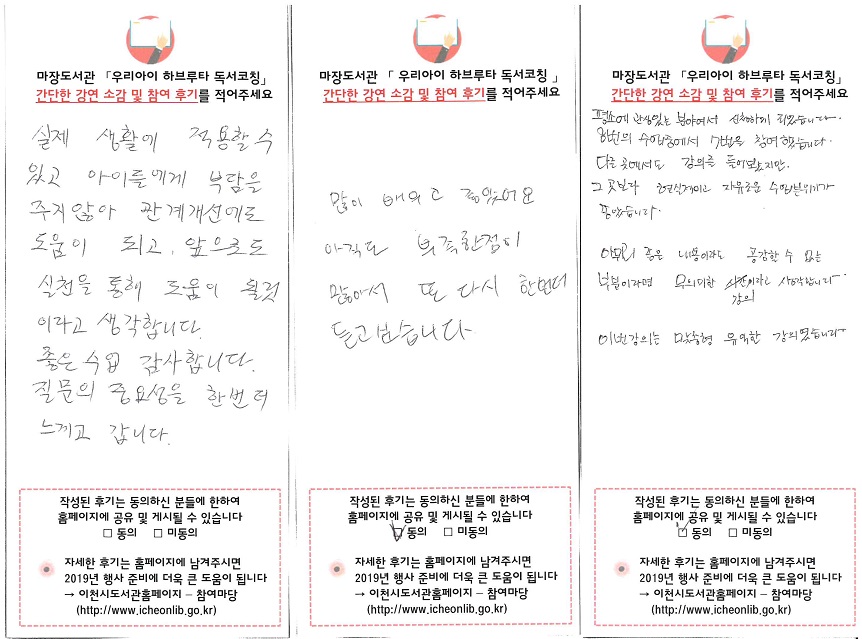 마장도서관 「우리아이 하브루타 독서코칭」
간단한 강연 소감 및 참여 후기를 적어주세요
실제 생활에 적용할 수
있고 아이들에게 부담을
주지않아 관계개선에도
도움이 되고, 앞으로도
실천을 통해 도움이 될것
이라고 생각합니다.
좋은 수업 감사합니다.
질문의 중요성을 한번 더
느끼고 갑니다.
작성된 후기는 동의하신 분들에 한하여
홈페이지에 공유 및 게시될 수 있습니다
□ 동의 □ 미동의
자세한 후기는 홈페이지에 남겨주시면
2019년 행사 준비에 더욱 큰 도움이 됩니다
→ 이천시도서관홈페이지 – 참여마당
(http://www.icheonlib.go.kr)
마장도서관 「 우리아이 하브루타 독서코칭 」
간단한 강연 소감 및 참여 후기를 적어주세요
많이 배우고 좋았어요
아직도 부족한점이
많아서 또 다시 한번더
듣고보습니다
작성된 후기는 동의하신 분들에 한하여
홈페이지에 공유 및 게시될 수 있습니다
□ 동의 □ 미동의
자세한 후기는 홈페이지에 남겨주시면
2019년 행사 준비에 더욱 큰 도움이 됩니다
→ 이천시도서관홈페이지 – 참여마당
(http://www.icheonlib.go.kr)
마장도서관 「우리아이 하브루타 독서코칭」
간단한 강연 소감 및 참여 후기를 적어주세요
평소에 관심있는 분야여서 신청하게 되었습니다.
8번의 수업중에서 7번을 참여했습니다.
다른 곳에서도 강의를 들어보았지만.
그 곳보다 현실적이고 자유로운 수업분위기가
좋았습니다.
아무리 좋은 내용이라도 공감할 수 없는
부분이라면 무의미한 이라고 생각합니다
강의
이번강의는 맞춤형 유익한 강의였습니다
작성된 후기는 동의하신 분들에 한하여
홈페이지에 공유 및 게시될 수 있습니다
□ 동의 □ 미동의
자세한 후기는 홈페이지에 남겨주시면
2019년 행사 준비에 더욱 큰 도움이 됩니다
→ 이천시도서관홈페이지 – 참여마당
(http://www.icheonlib.go.kr)